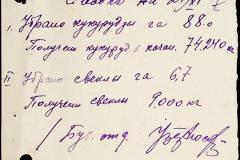 Сводка на 21/XI
1. Убрано кукурудзы га 880
Получено кукуруд. в качан. 74.240 кг
II Убрано свеклы га 6,7
Получено свеклы 9000 кг
/ Бух. отд.